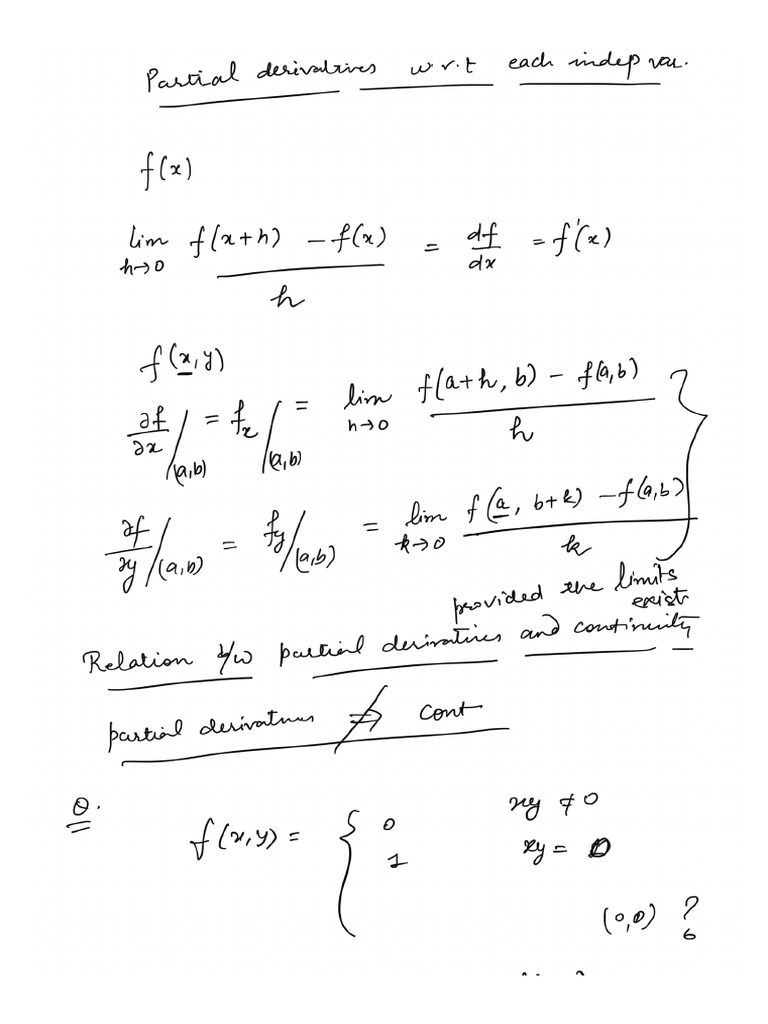 Partial derivatives w r.t each indep var.
f(x)
lim h→0 f(x+h) - f(x) / h = df/dx = f'(x)
f(x,y)
∂f/∂x |(a,b) = fx |(a,b) = lim h→0 f(a+h, b) - f(a,b) / h
∂f/∂y |(a,b) = fy |(a,b) = lim k→0 f(a, b+k) - f(a,b) / k
provided the limits exist
Relation b/w partial derivatives and continuity
partial derivatives ⇏ cont
Q.
f(x,y) = { 0 xy ≠ 0
1 xy = 0
(0,0) ?